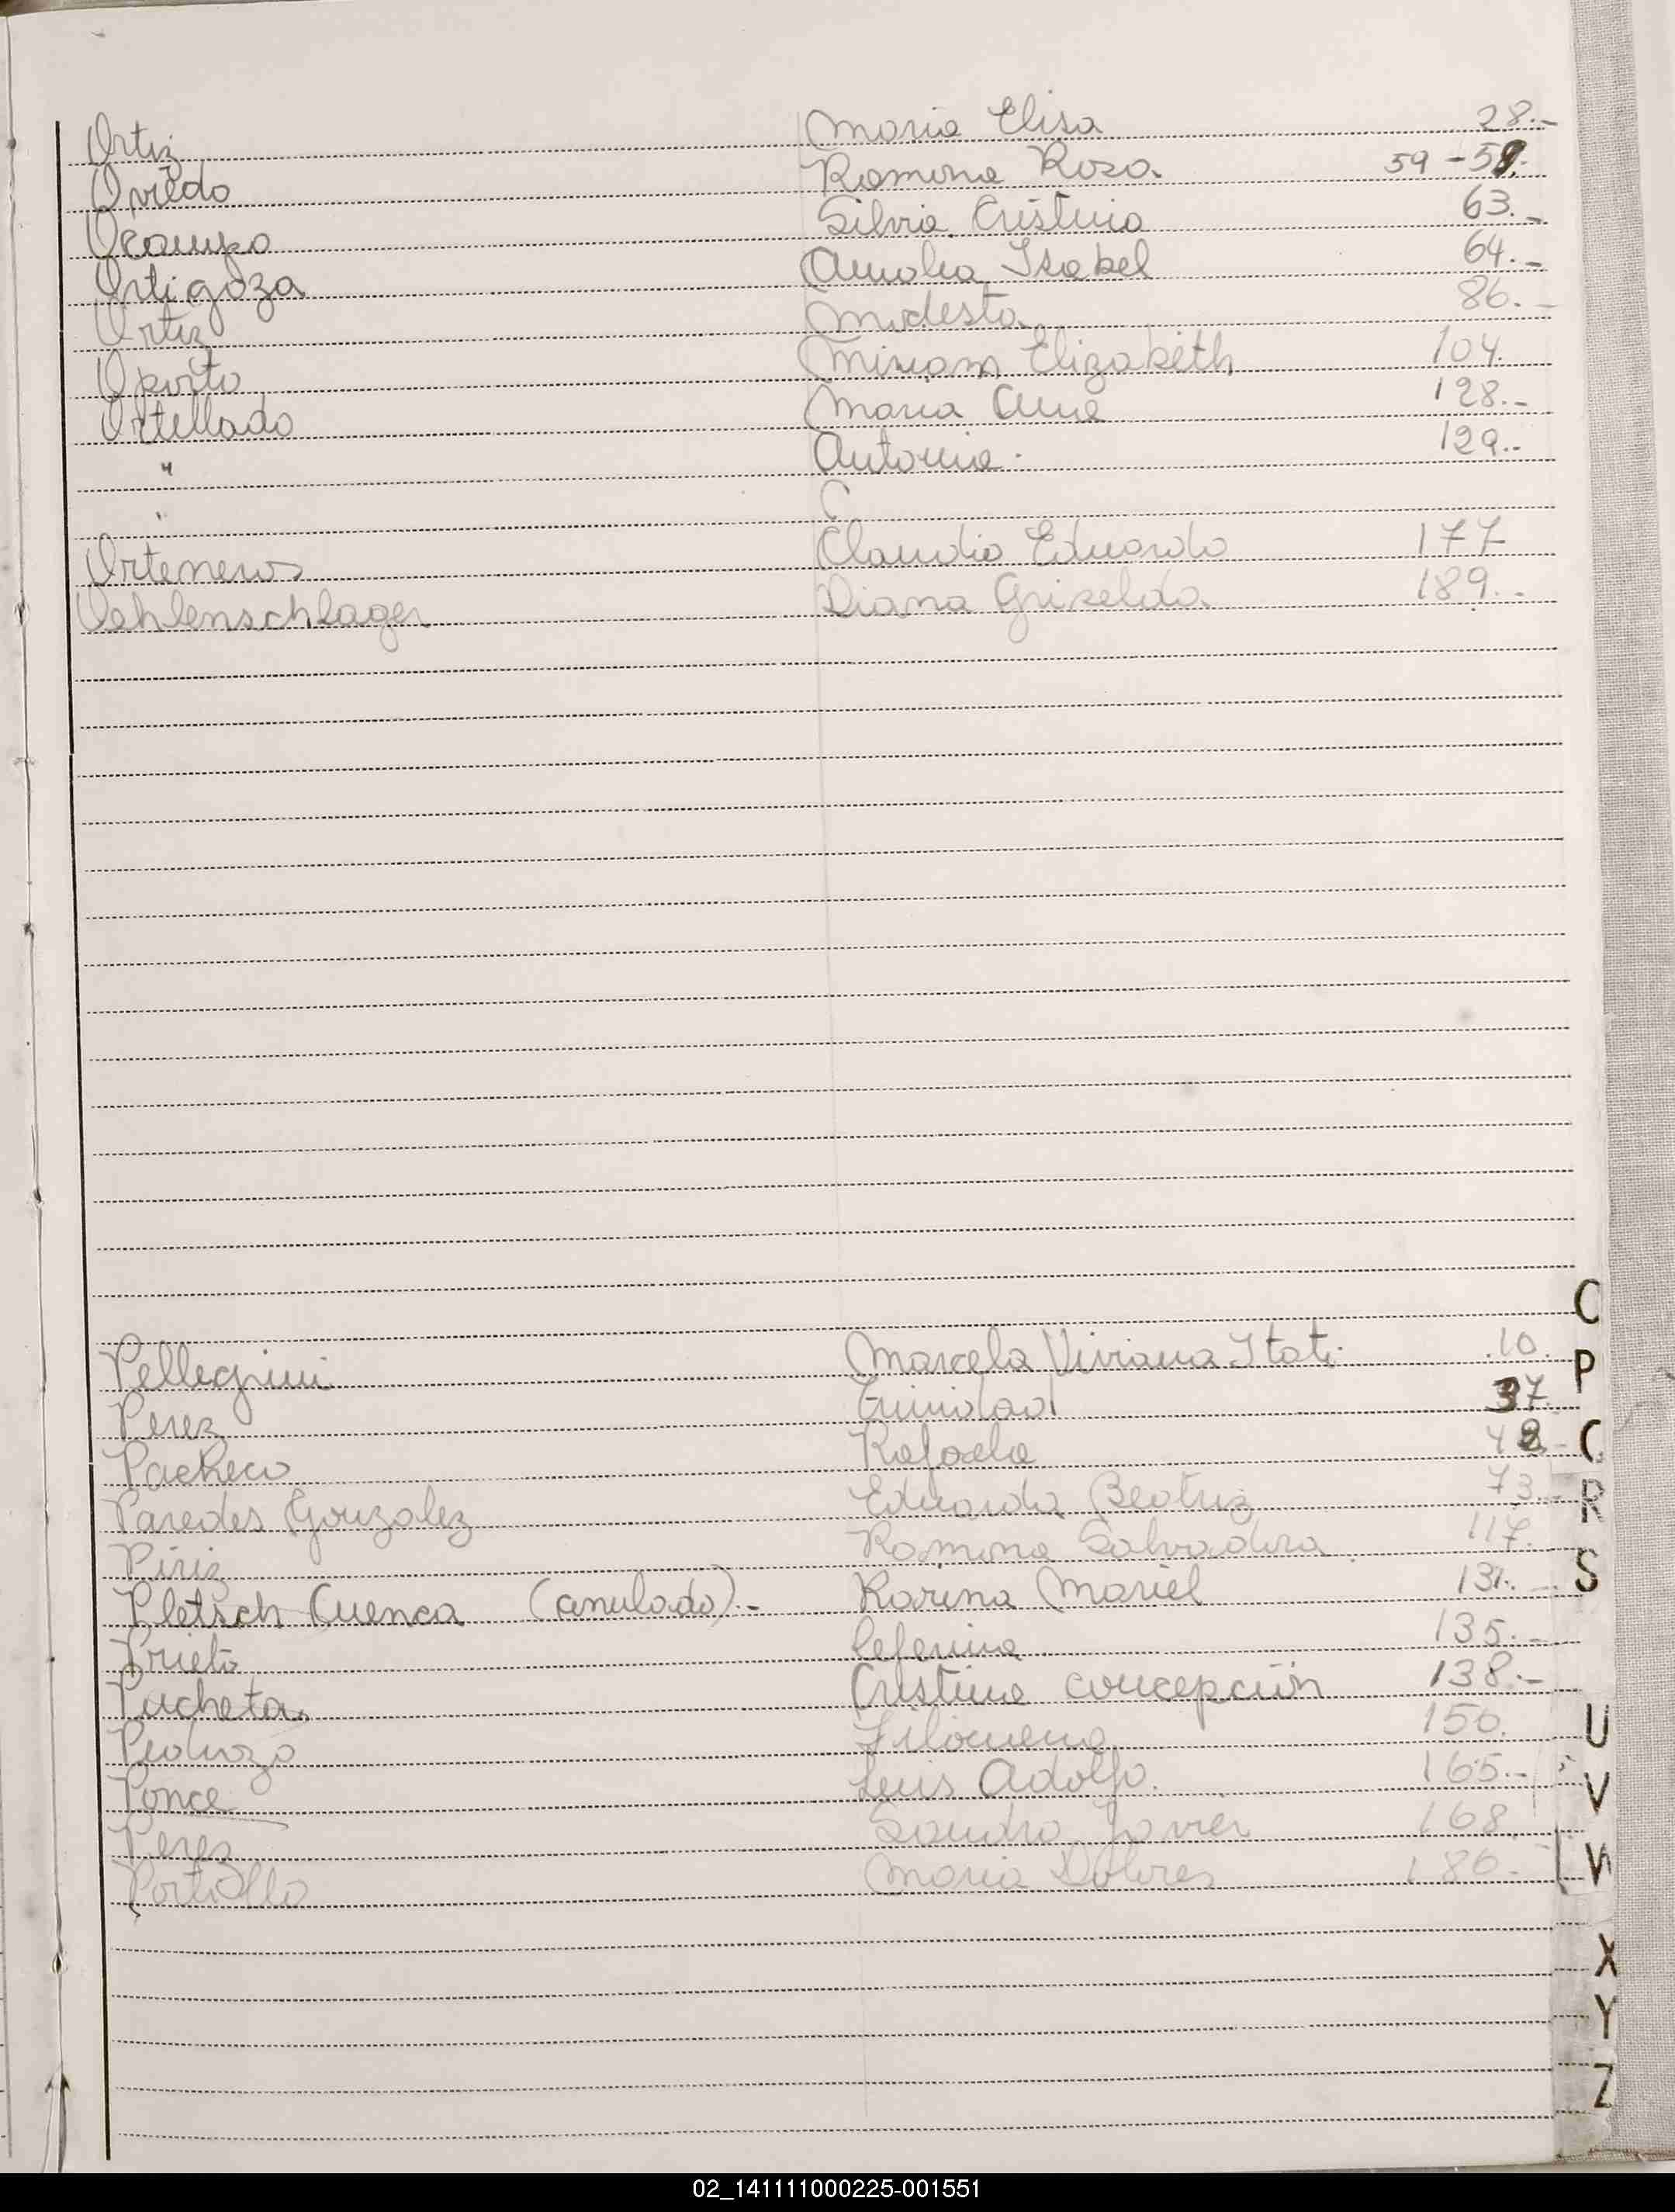 Ortiz Maria Elisa 28.-
Oviedo Ramona Rosa. 59 - 59.
Ocampo Silvia Cristina 63.-
Ortigoza Amalia Isabel 64.-
Ortiz Modesta 86.-
Oporto Miriam Elizabeth 104.
Ortellado Maria Ana 128.-
" Antonia. 129.-
" C
Orteneros Claudio Eduardo 177
Oehlenschlager Diana Griselda 189.-
C
Pellegrini Marcela Viviana Itati. 10.
P
Perez Trinidad 37.
Pacheco Rafaela 48.-
C
Paredes Gonzalez Eduarda Beatriz 73.-
R
Piriz Ramona Salvadora 117.
Pletsch Cuenca (anulado).- Karina Mariel 131.-
S
Prieto Ceferina 135.-
Pacheta Cristina concepción 138.-
Pedrozo Filomena 150.
U
Ponce Luis Adolfo. 165.-
V
Perez Sandro Javier 168.
Portillo Maria Dolores 186.-
W
X
Y
Z
02_141111000225-001551